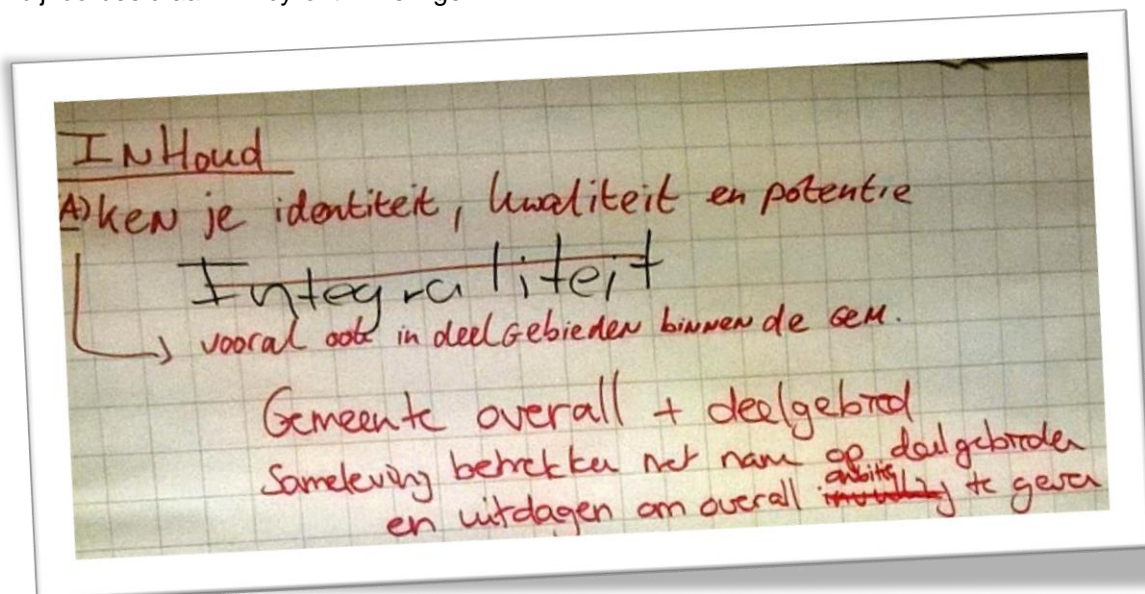 InHoud
A) ken je identiteit, kwaliteit en potentie
Integraliteit
vooral ook in deelgebieden binnen de gem.
Gemeente overall + deelgebied
Sameleving betrekken met name op deelgebieden
en uitdagen om overall ambitie te geven